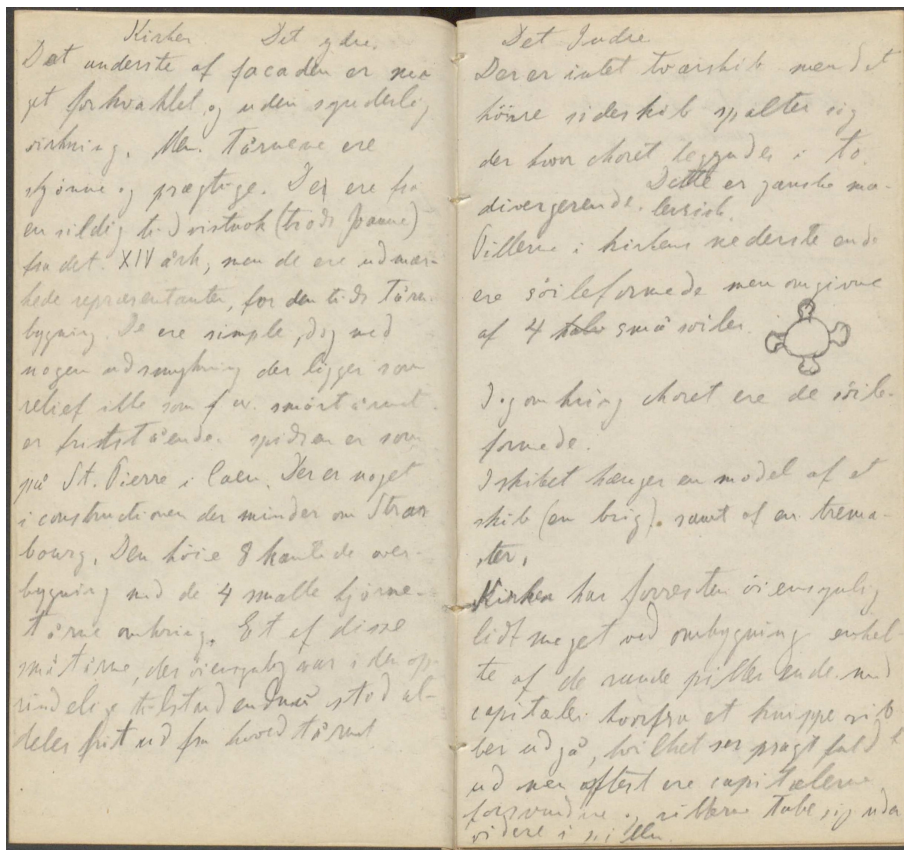 Kirken Det ydre.
Det underste af facaden er no-
get forhutlet og uden synderlig
virkning. Men tårnene ere
skjönne og prægtige. De ere fra
en sildig tid vistnok (trods Joanne)
fra det XIV årh, men de ere udmær-
kede repræsentanter for den tids Tårn-
bygning. De ere simple, dog med
nogen udsmykning der ligger som
relief ikke som f. ex. smårtårnet
er fritstående. spidsen er som
på St. Pierre i Caen. Der er noget
i constructionen der minder om Stras-
bourg. Den höie 8 kantede over-
bygning med de 4 smalle hjörne-
tårne omkring. Et af disse
små tårne, der öiensynlig var i den op-
rindelige tilstand endnu stod al-
deles frit ud fra hovedtårnet
Det Indre
Der er intet tværskib men det
höire sideskib spalter sig
der hvor choret begynder i to.
divergerende. Dette er ganske ma-
lerisk.
Pillerne i kirkens nederste ende
ere söileformede men omgivne
af 4 halv små söiler.
I omkring choret ere de söile-
formede.
I skibet hænger en model af et
skib (en brig). samt af en trema-
ster.
Kirken har forresten öiensynlig
lidt meget ved ombygning enkel-
te af de runde piller ende med
capitæler hvorfra et knippe rib-
ber udgå, hvilket ser pragtfuldt
ud men oftest ere capitælerne
forsvundne og ribberne tabe sig uden
videre i pillen